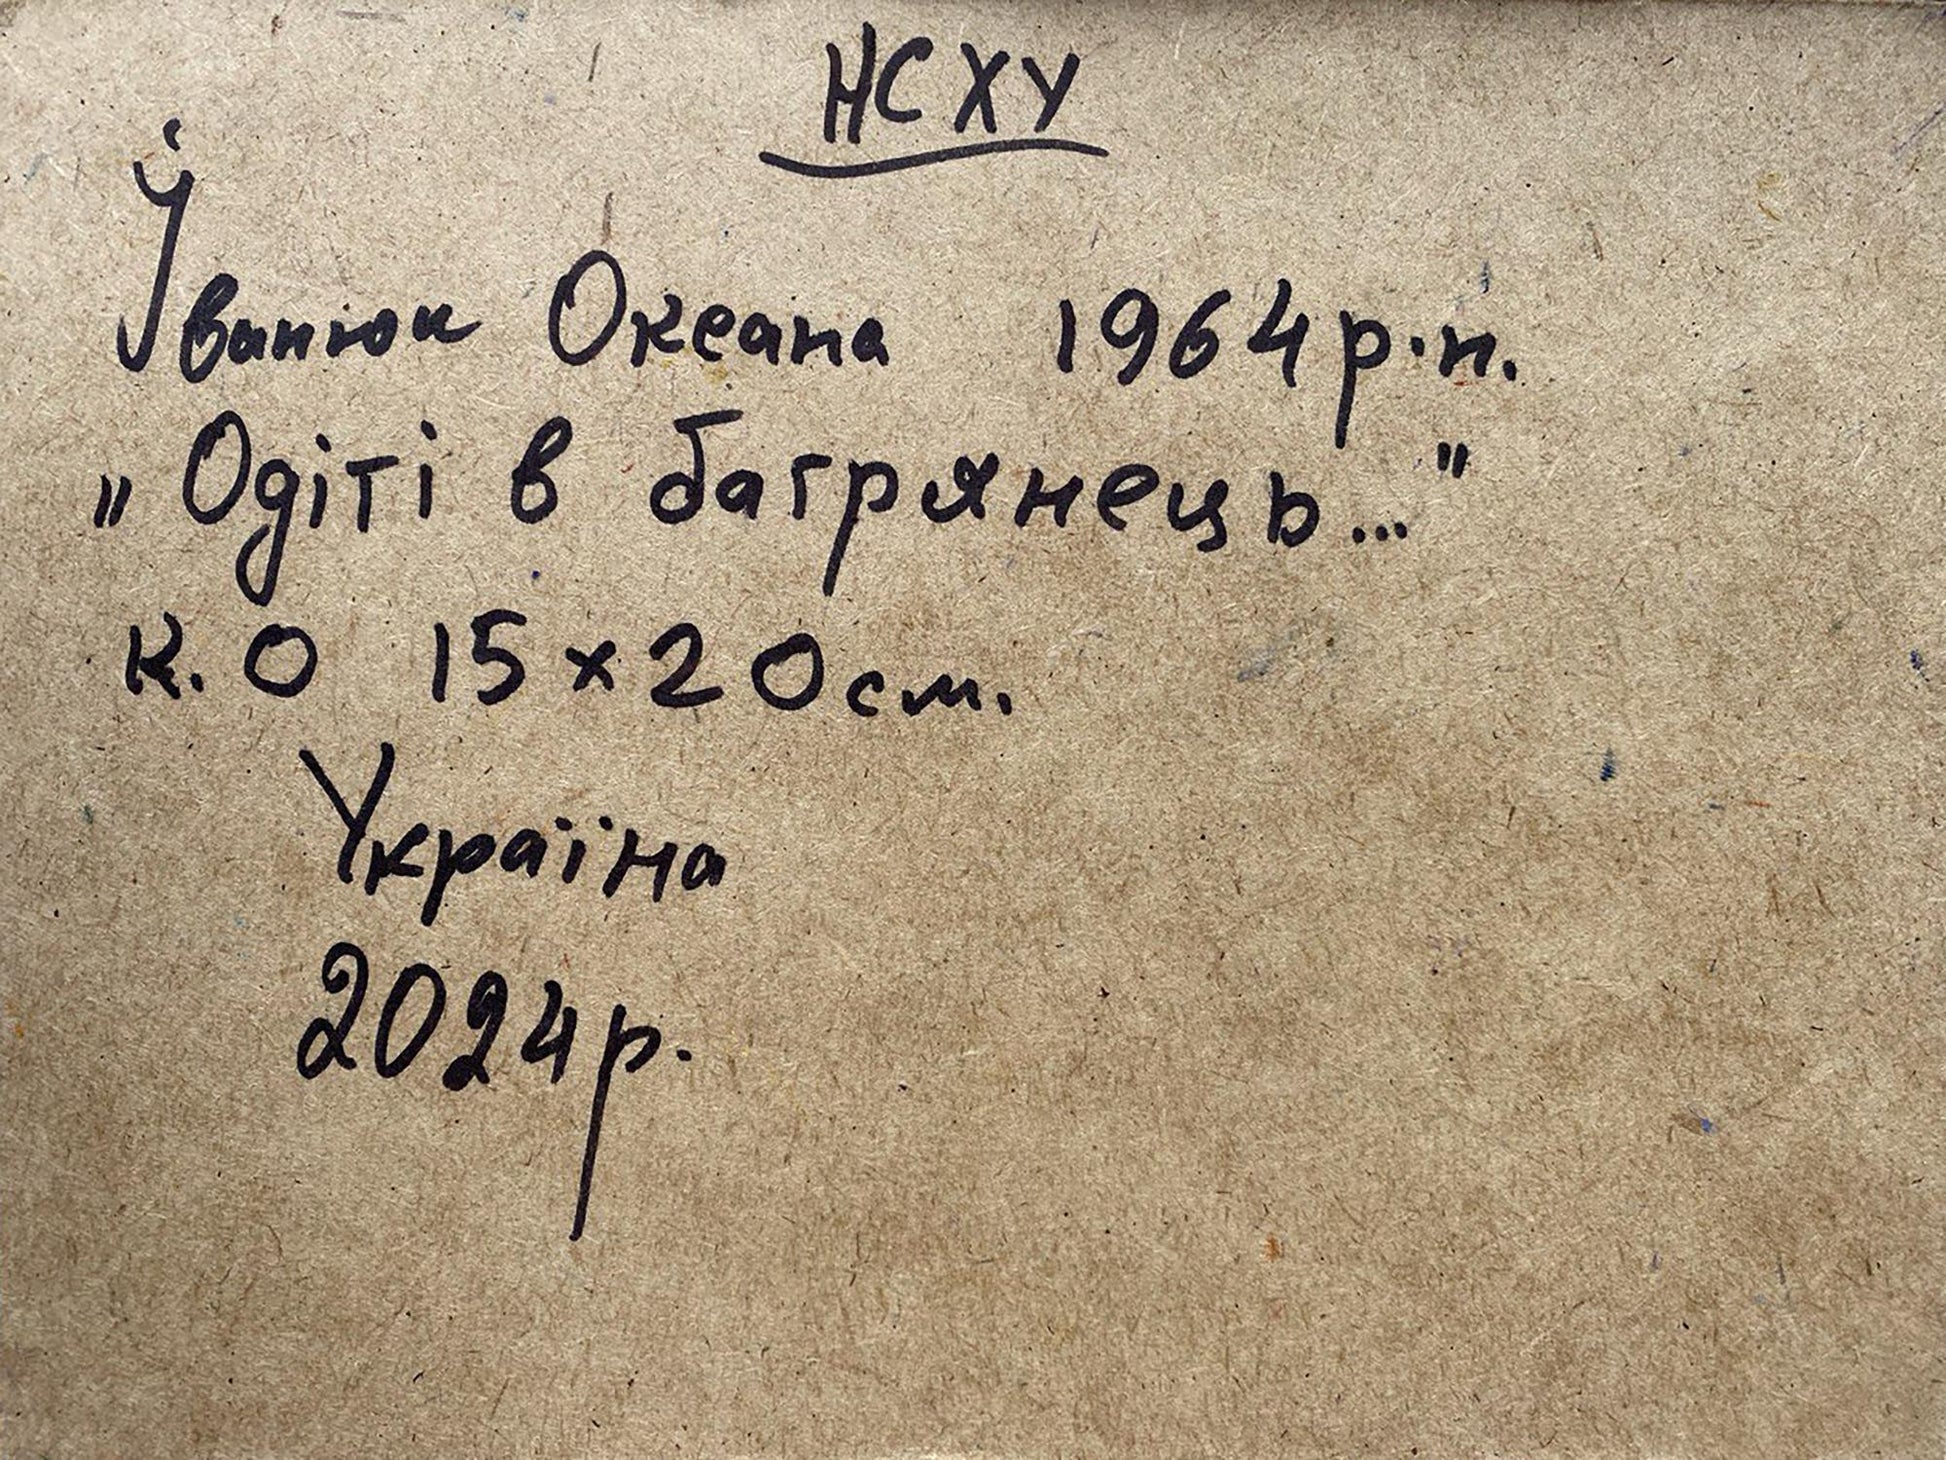 НСХУ
Іванюк Океана 1964 р.н.
„Одіті в багрянець..."
к. О 15×20см.
Україна
2024р.